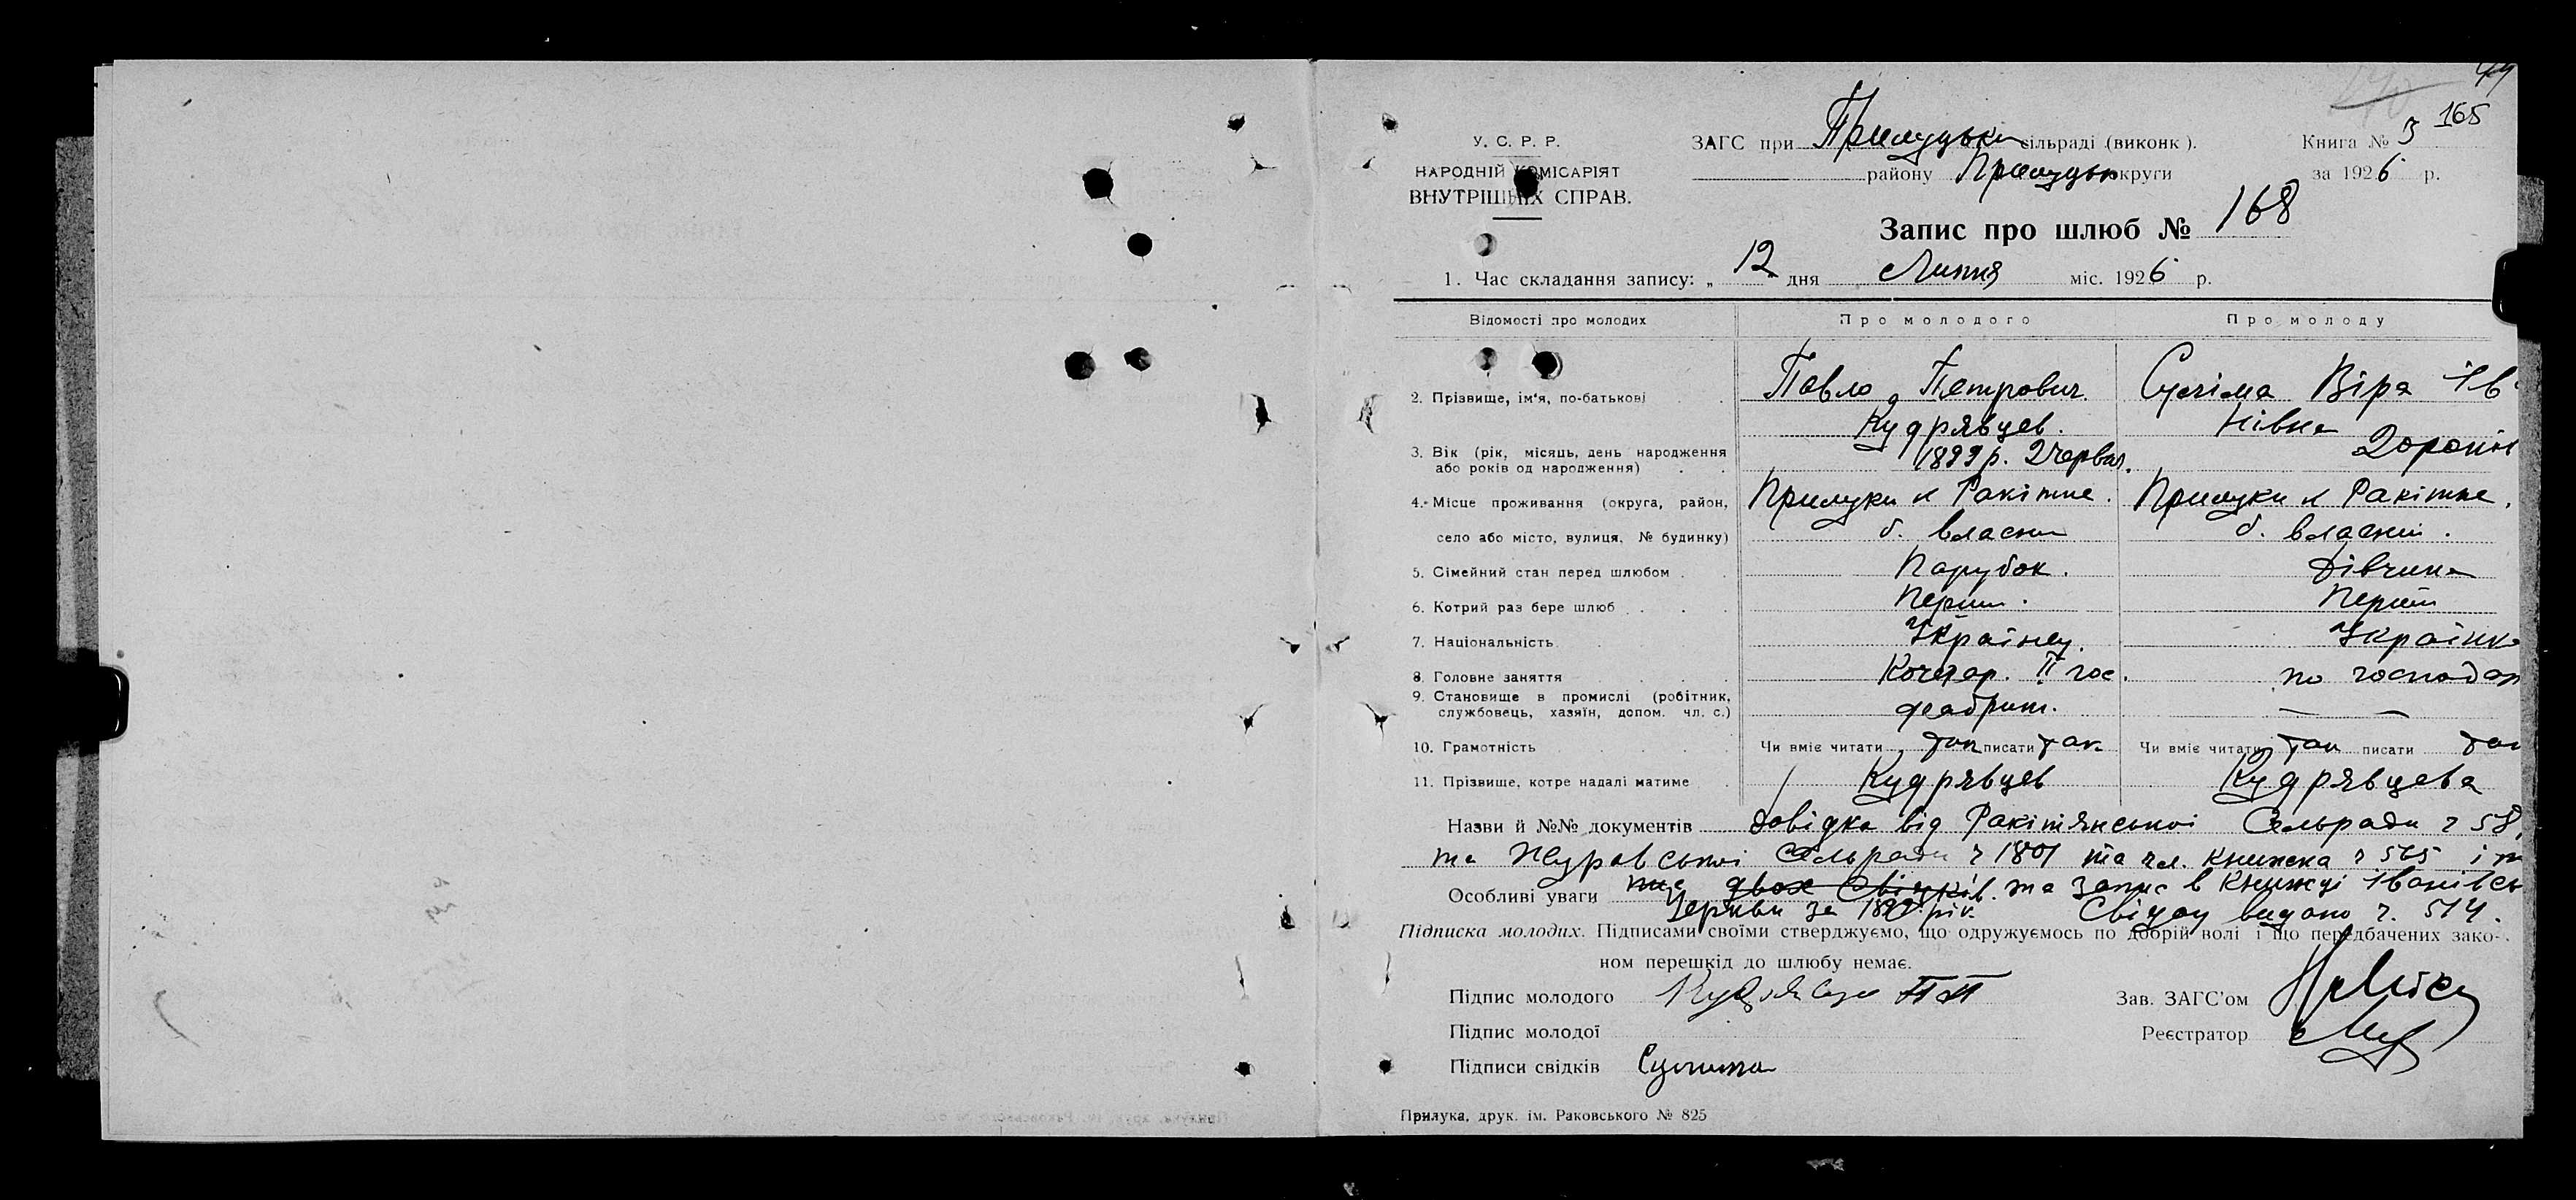 165
У. С. Р. Р.
ЗАГС при Прилуцьки сільраді (виконк).
Книга № 3
НАРОДНІЙ КОМІСАРІЯТ
ВНУТРІШНІХ СПРАВ.
району Прилуцьк округи
за 1926 р.
Запис про шлюб № 168
1. Час складання запису: „ 12 дня Липня міс. 1926 р.
Відомості про молодих
Про молодого
Про молоду
2. Прізвище, ім'я, по-батькові
Павло Петрович
Кудрявцев.
Віра Ів
нівна
3. Вік (рік, місяць, день народження
або років од народження)
1899 р. 2 червня.
4. Місце проживання (округа, район,
село або місто, вулиця, № будинку)
Прилуки х Ракітне.
б. власни
Прилуки х Ракітне.
б. власний.
5. Сімейний стан перед шлюбом
Парубок.
Дівчина
6. Котрий раз бере шлюб
Перший.
Перший
7. Національність
Українец.
Українка
8. Головне заняття
Кочегар. ІІ гос.
по господар
9. Становище в промислі (робітник,
службовець, хазяїн, допом. чл. с.)
фабрит.
— —
10. Грамотність
Чи вміє читати так писати так
Чи вміє читати так писати так
11. Прізвище, котре надалі матиме
Кудрявцев
Кудрявцева
Назви й №№ документів довідка від Ракітянської Сельради ч 58,
та Журавської Сельради ч 1801 та чл. книжка ч 565 і
Особливі уваги двох Свідків. та запис в книжці Іванівсь
Церкви за рік Свідоц видано ч. 514.
Підписка молодих. Підписами своїми стверджуємо, що одружуємось по добрій волі і що передбачених зако-
ном перешкід до шлюбу немає.
Підпис молодого Кудрявцев ПП
Зав. ЗАГС'ом
Підпис молодої
Реєстратор
Підписи свідків
Прилука, друк. ім. Раковського № 825